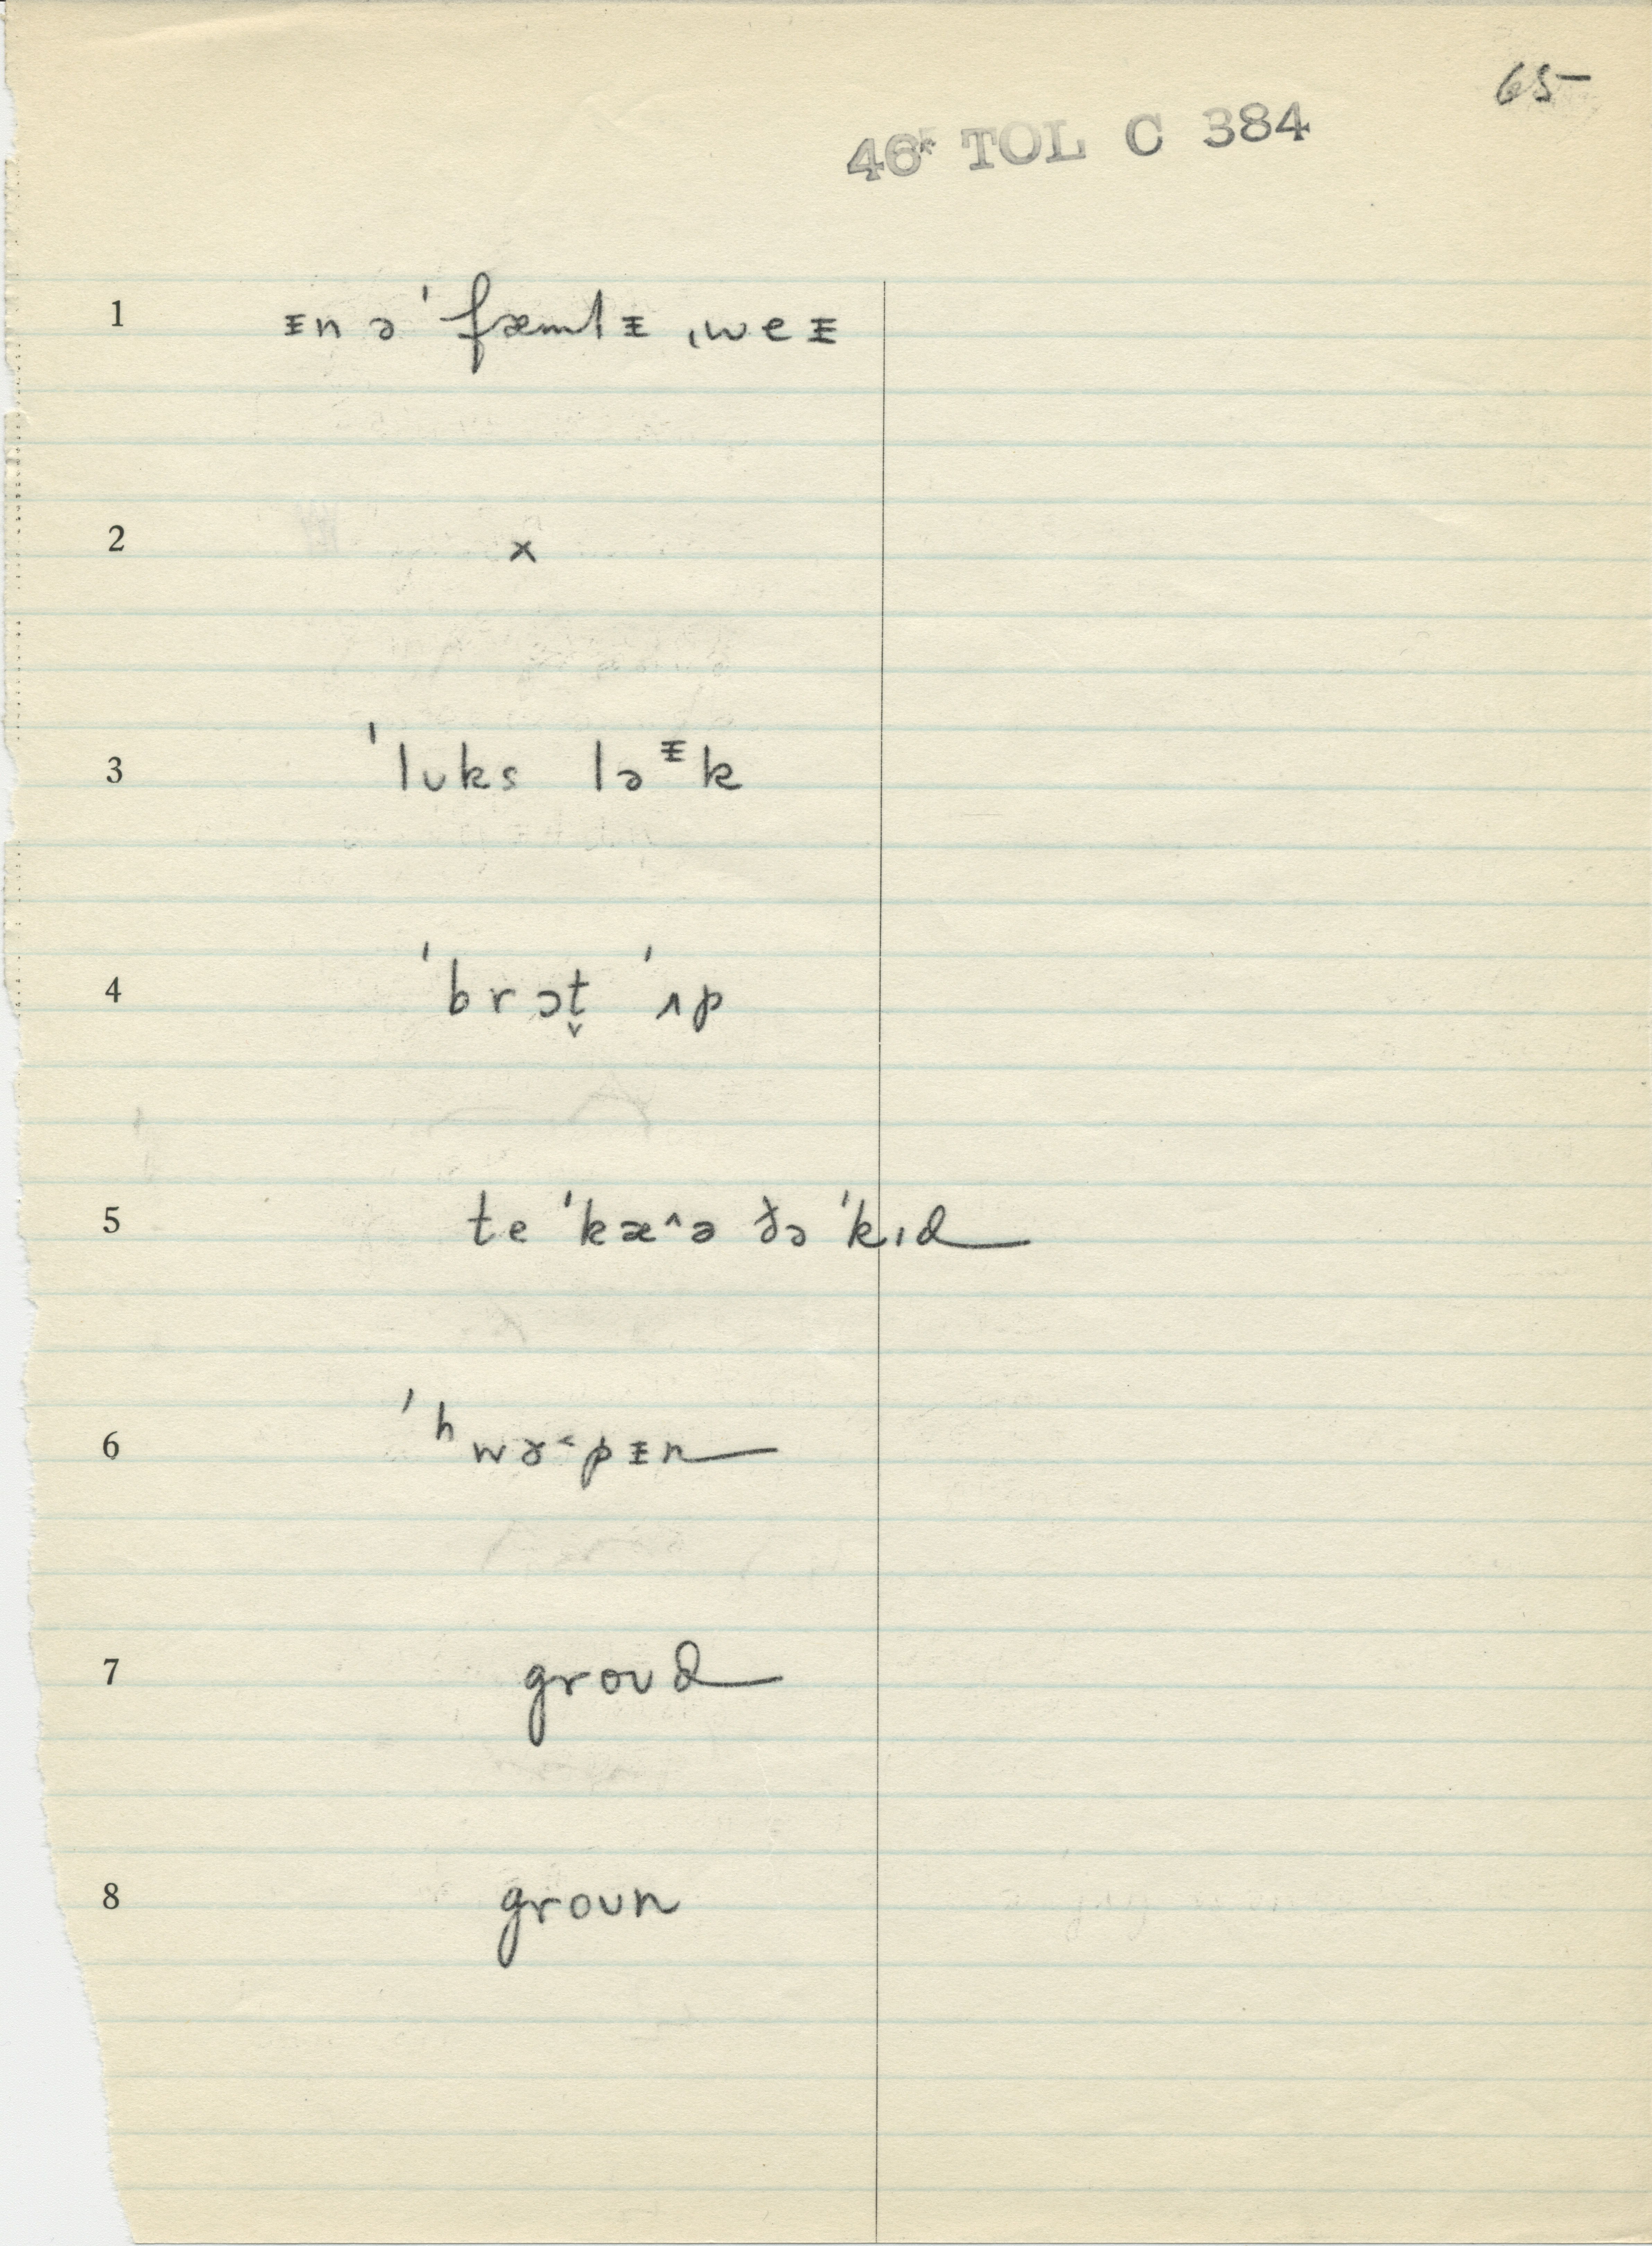 65
46* TOL C 384
1 ᵻn ə ˈfæmlᵻ ˌweᵻ
2 x
3 ˈlʊks ləᵻk
4 ˈbrɔt̬ ˈʌp
5 te ˈkæ^ə ðə ˈkɪd
6 ˈʰwɤ˂pᵻn
7 groʊd
8 groʊn